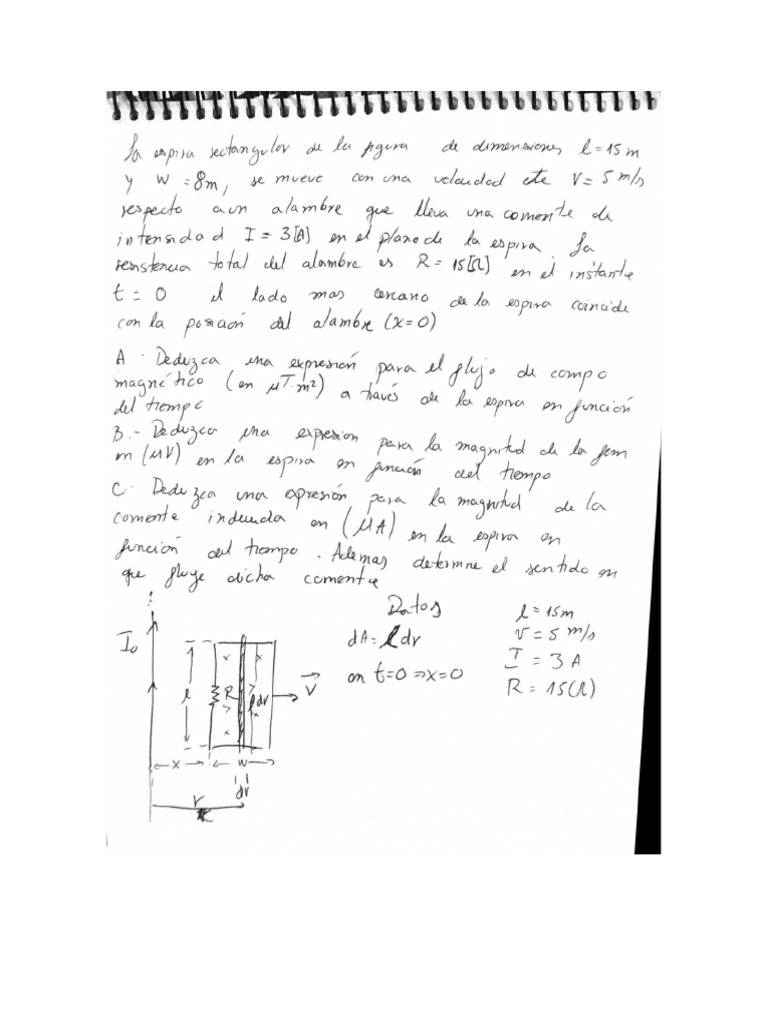 La espira rectangular de la figura de dimensiones l=15m
y W =8m, se mueve con una velocidad cte V= 5 m/s
respecto a un alambre que lleva una corriente de
intensidad I = 3[A] en el plano de la espira. La
resistencia total del alambre es R = 15[Ω] en el instante
t = 0 el lado mas cercano de la espira coincide
con la posición del alambre (x=0)
A. Deduzca una expresión para el flujo de campo
magnético (en μT·m²) a través de la espira en función
del tiempo
B.- Deduzca una expresion para la magnitud de la fem
m (μV) en la espira en función del tiempo
C. Deduzca una expresión para la magnitud de la
corriente inducida en (μA) en la espira en
función del tiempo. Ademas determine el sentido en
que fluye dicha corriente
Datos
dA= l dr
en t=0 ⇒x=0
l = 15m
v = 5 m/s
I = 3 A
R = 15(Ω)
I₀
x x
l R l dr
x
x
V
x w
dr
r